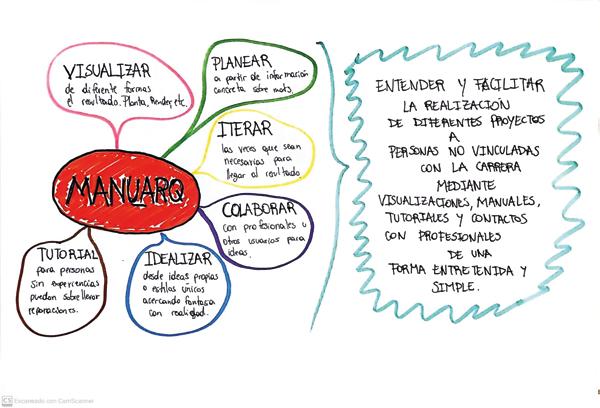 VISUALIZAR
de diferente formas
el resultado. Planta, Render, etc.
PLANEAR
a partir de información
concreta sobre mats.
ITERAR
las veces que sean
necesarias para
llegar al resultado
MANUARQ
COLABORAR
con profesionales u
otros usuarios para
ideas.
TUTORIAL
para personas
sin experiencias
puedan sobrellevar
reparaciones.
IDEALIZAR
desde ideas propias
o estilos unicos
acercando fantasía
con realidad.
ENTENDER Y FACILITAR
LA REALIZACIÓN
DE DIFERENTES PROYECTOS
A
PERSONAS NO VINCULADAS
CON LA CARRERA
MEDIANTE
VISUALIZACIONES, MANUALES,
TUTORIALES Y CONTACTOS
CON PROFESIONALES
DE UNA
FORMA ENTRETENIDA Y
SIMPLE.
CS Escaneado con CamScanner